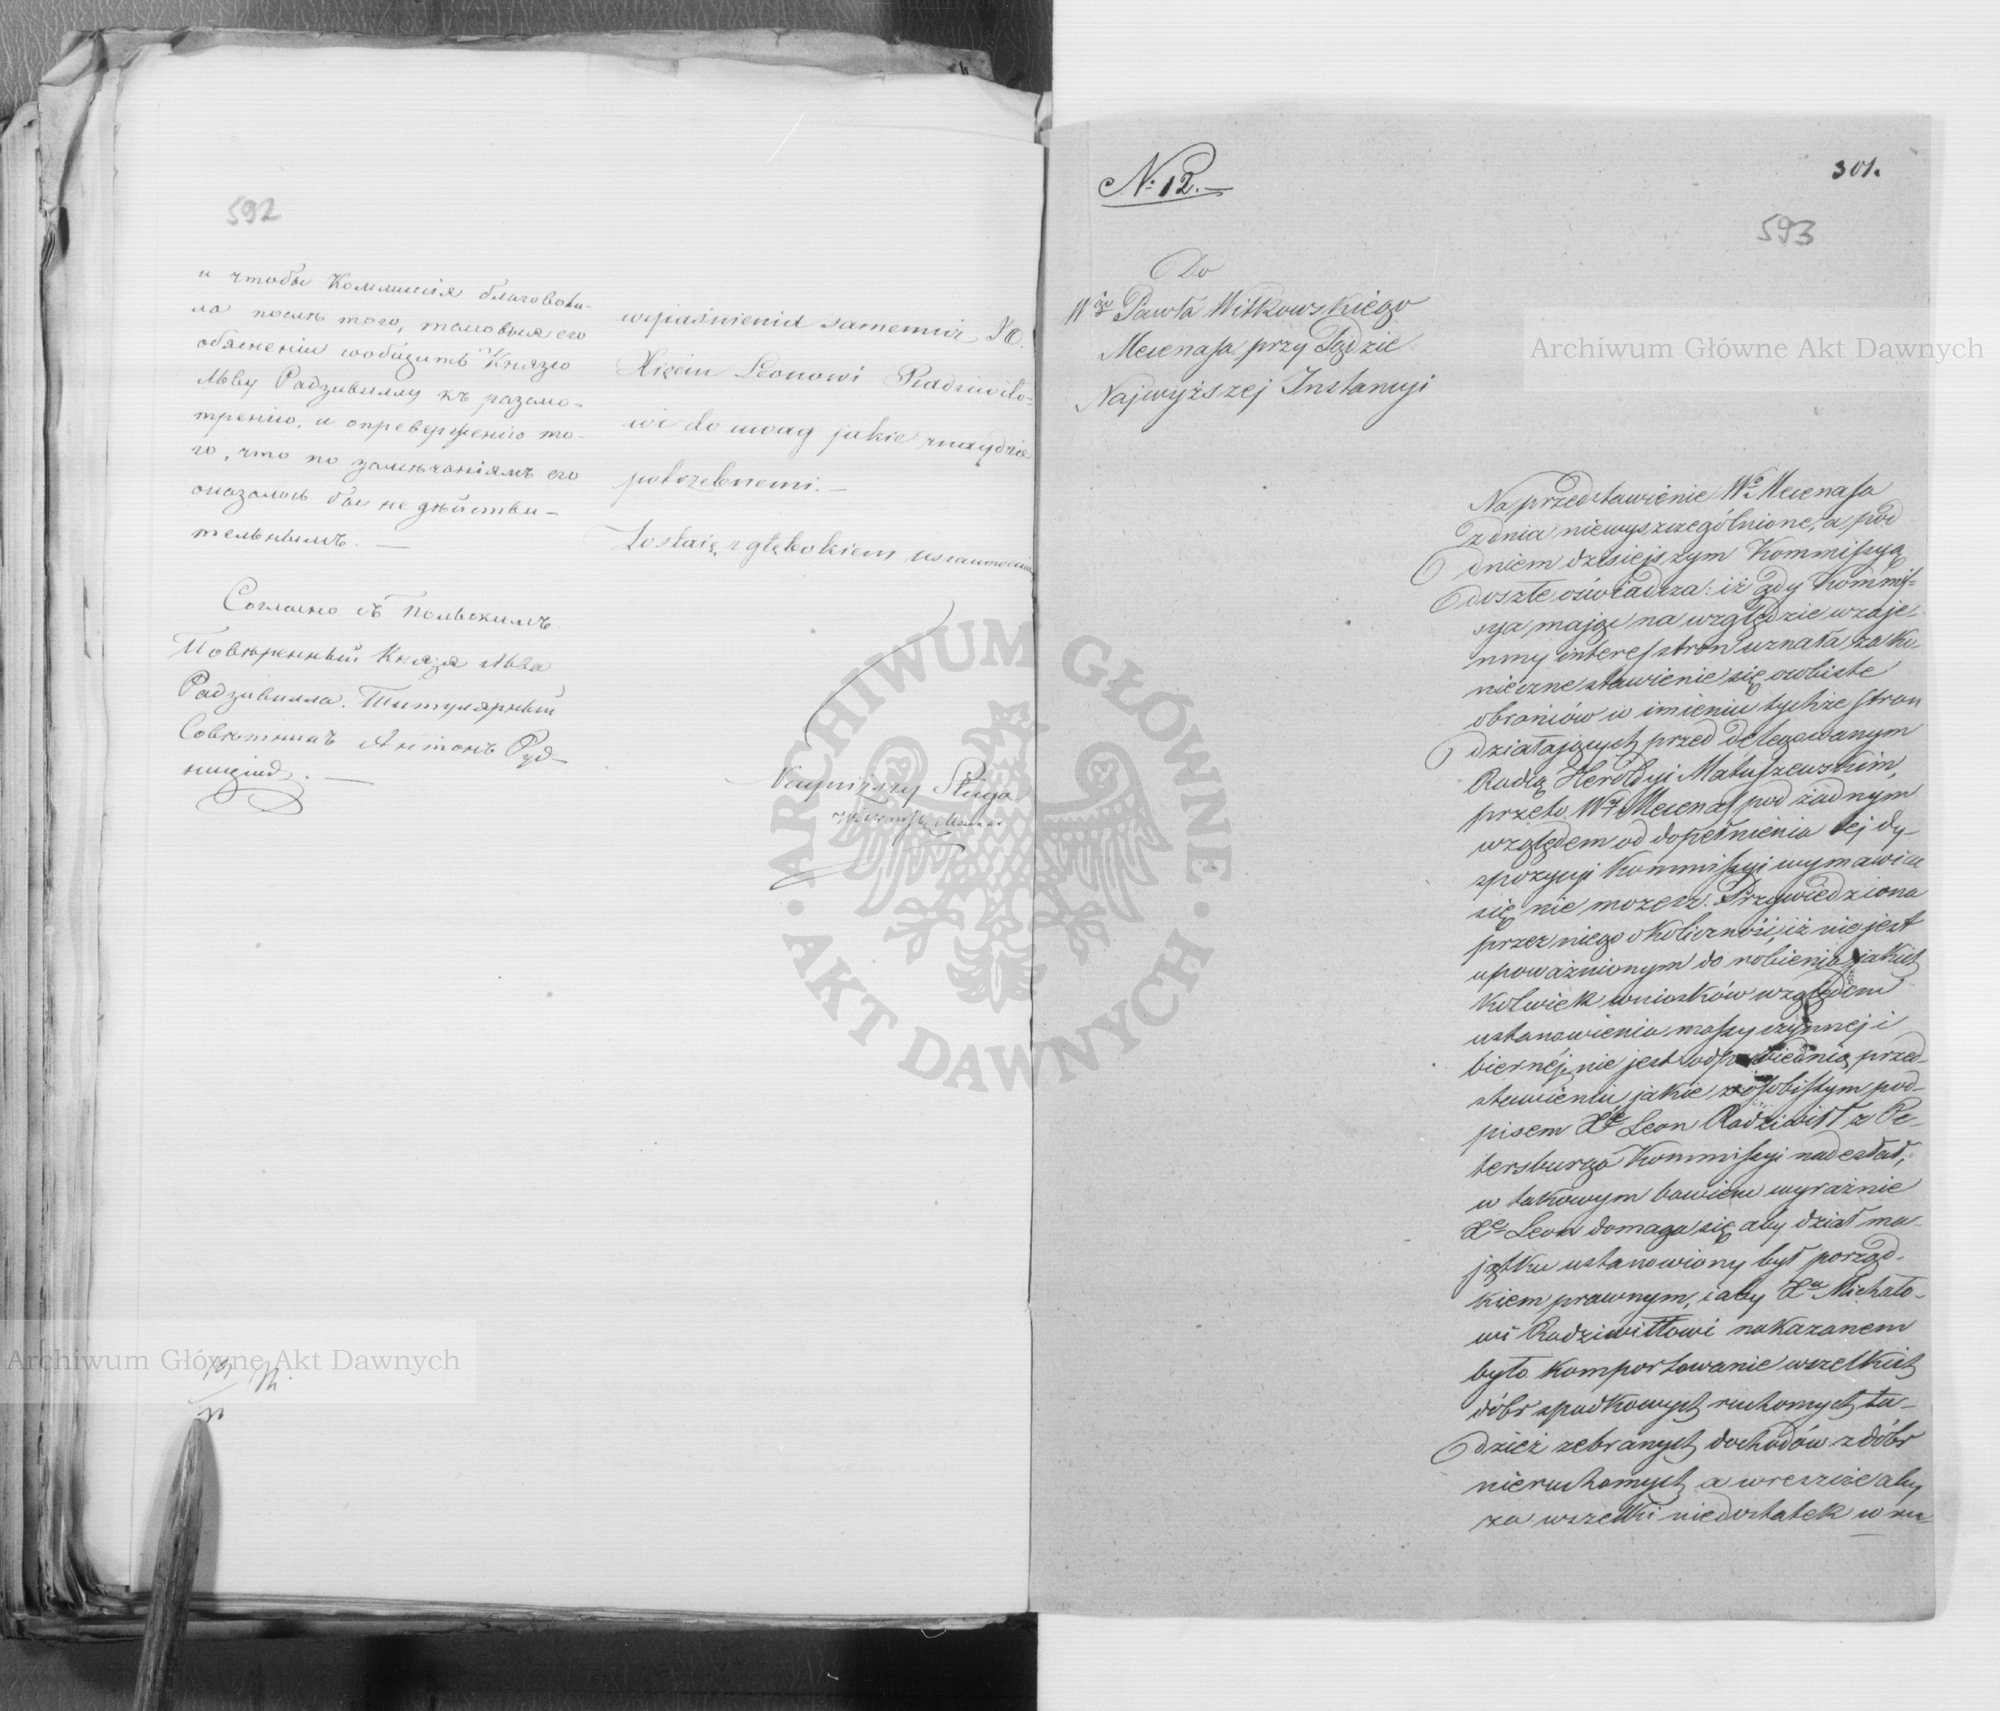 592
и чтобы Коммисія благоволи-
ла послѣ того, таковыя его
обясненіи сообщить Князю
Льву Радзивиллу къ разсмо-
трению, и опроверженію то-
го, что по замѣчаніямъ его
оказалось бы не дѣйстви-
тельнымъ. —
Согласно съ Польскимъ
Повѣренный Князя Льва
Радзивилла, Титулярный
Совѣтникъ Антонъ Руд-
ницкій. —
wyjaśnienia samemuż JO.
Xięciu Leonowi Radziwiłło-
wi do uwag jakie znaydzie
potrzebnemi. —
Zostaię z głębokiem uszanowaniem
Nayniższy Sługa
Archiwum Główne Akt Dawnych
ARCHIWUM GŁÓWNE · AKT DAWNYCH ·
No 12. —
301.
593
Do
Wgo Pawła Witkowskiego
Mecenasa przy Sądzie
Najwyższej Instancyi
Archiwum Główne Akt Dawnych
Na przedstawienie Wo Mecenasa
z dnia niewyszczególnione, a pod
dniem dzisiejszym Kommissyą
doszłe oświadcza: iż gdy Kommis-
sya mając na względzie wzaje-
mny interes stron uznała za ko-
nieczne stawienie się osobiste
obrońców w imieniu tychże stron
działających przed delegowanym
Radcą Heroldyi Matuszewskim,
przeto Wy Mecenas pod żadnym
względem od dopełnienia tej dy-
spozycyi Kommissyi wymawiać
się nie możesz. Przywiedziona
przez niego okoliczność, iż nie jest
upoważnionym do robienia jakich
kolwiek wniosków względem
ustanowienia massy czynnej i
biernéj, nie jest odpowiednią przed-
stawieniu jakie z osobistym pod-
pisem Xe Leon Radziwiłł z Pe-
tersburga Kommissyi nadesłał,
w takowym bowiem wyraźnie
Xe Leon domaga się aby dział ma-
jątku ustanowiony był porząd-
kiem prawnym, i aby Xu Michało-
wi Radziwiłłowi nakazanem
było komportowanie wszelkich
dóbr spadkowych ruchomych tu-
dzież zebranych dochodów z dóbr
nieruchomych a wreszcie aby
za wszelki niedostatek w ru-